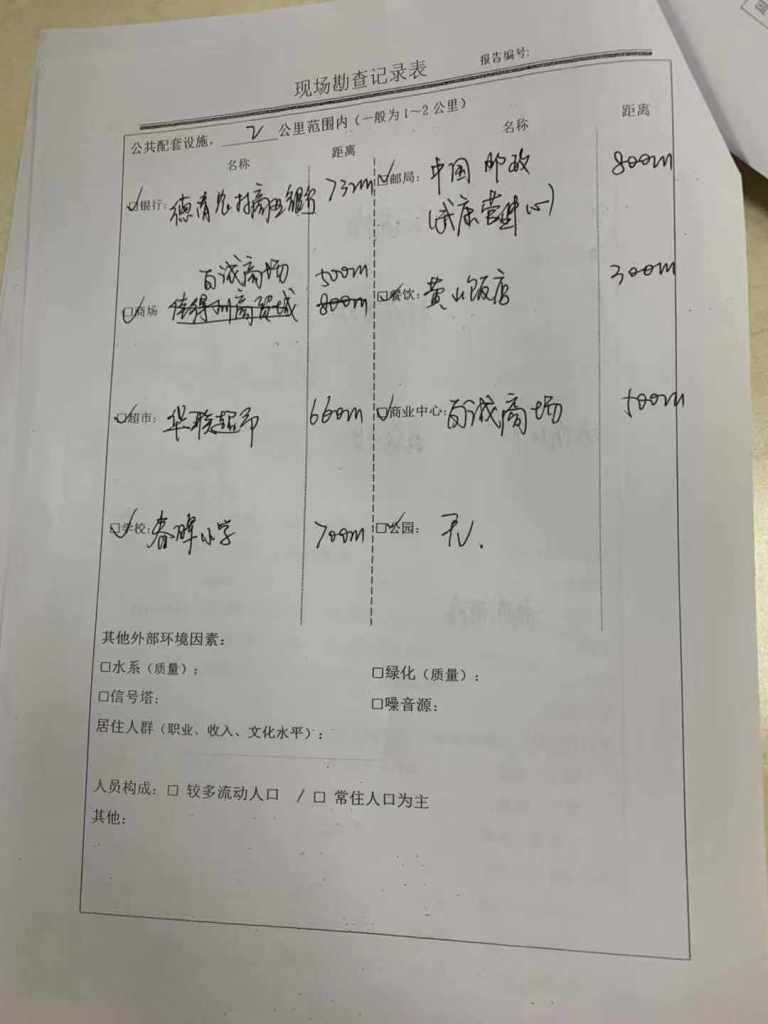 现场勘查记录表
报告编号:
公共配套设施，2公里范围内（一般为1～2公里）
名称 距离 名称 距离
☑银行: 德清农村商业银行 73m ☑邮局: 中国邮政 800m
(武康营业中心)
百诚商场 500m
☑商场 佳得利商贸城 800m ☑餐饮: 黄山饭店 300m
☑超市: 华联超市 660m ☑商业中心: 百诚商场 500m
☑学校: 春晖小学 700m ☑公园: 无.
其他外部环境因素:
□水系（质量）; □绿化（质量）:
□信号塔: □噪音源:
居住人群（职业、收入、文化水平）:
人员构成: □ 较多流动人口 / □ 常住人口为主
其他: